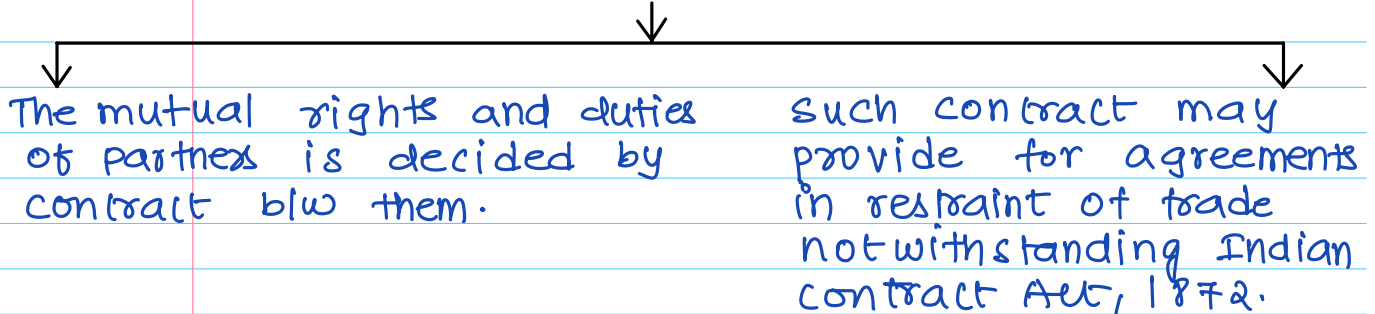 The mutual rights and duties
of partners is decided by
contract b/w them.
such contract may
provide for agreements
in restraint of trade
notwithstanding Indian
contract Act, 1872.